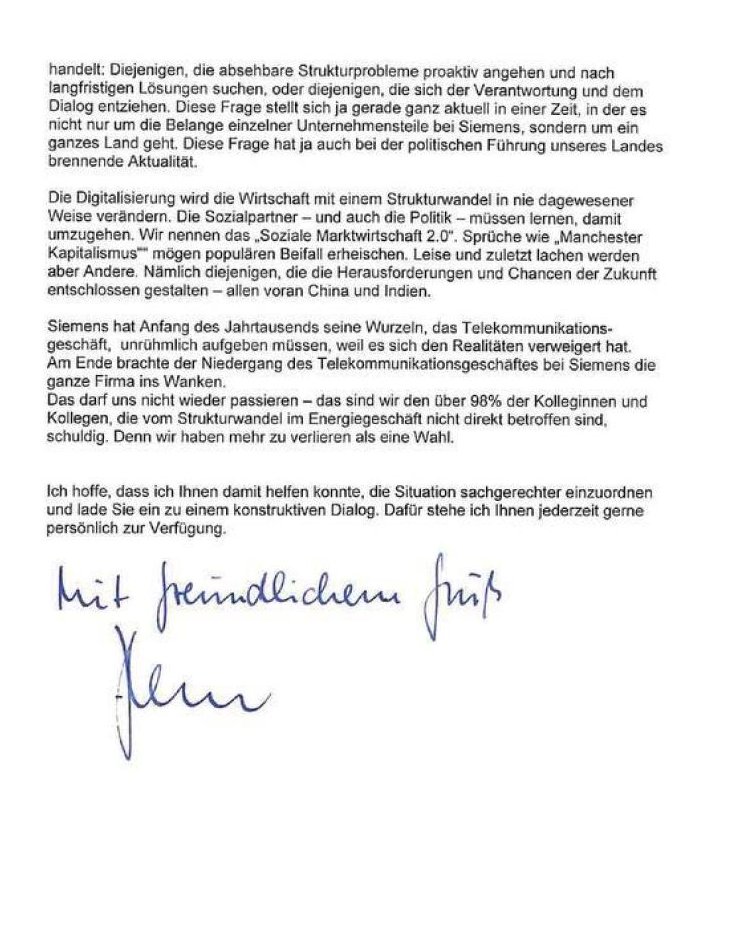 handelt: Diejenigen, die absehbare Strukturprobleme proaktiv angehen und nach
langfristigen Lösungen suchen, oder diejenigen, die sich der Verantwortung und dem
Dialog entziehen. Diese Frage stellt sich ja gerade ganz aktuell in einer Zeit, in der es
nicht nur um die Belange einzelner Unternehmensteile bei Siemens, sondern um ein
ganzes Land geht. Diese Frage hat ja auch bei der politischen Führung unseres Landes
brennende Aktualität.
Die Digitalisierung wird die Wirtschaft mit einem Strukturwandel in nie dagewesener
Weise verändern. Die Sozialpartner – und auch die Politik – müssen lernen, damit
umzugehen. Wir nennen das „Soziale Marktwirtschaft 2.0“. Sprüche wie „Manchester
Kapitalismus““ mögen populären Beifall erheischen. Leise und zuletzt lachen werden
aber Andere. Nämlich diejenigen, die die Herausforderungen und Chancen der Zukunft
entschlossen gestalten – allen voran China und Indien.
Siemens hat Anfang des Jahrtausends seine Wurzeln, das Telekommunikations-
geschäft, unrühmlich aufgeben müssen, weil es sich den Realitäten verweigert hat.
Am Ende brachte der Niedergang des Telekommunikationsgeschäftes bei Siemens die
ganze Firma ins Wanken.
Das darf uns nicht wieder passieren – das sind wir den über 98% der Kolleginnen und
Kollegen, die vom Strukturwandel im Energiegeschäft nicht direkt betroffen sind,
schuldig. Denn wir haben mehr zu verlieren als eine Wahl.
Ich hoffe, dass ich Ihnen damit helfen konnte, die Situation sachgerechter einzuordnen
und lade Sie ein zu einem konstruktiven Dialog. Dafür stehe ich Ihnen jederzeit gerne
persönlich zur Verfügung.
Mit freundlichem Gruß